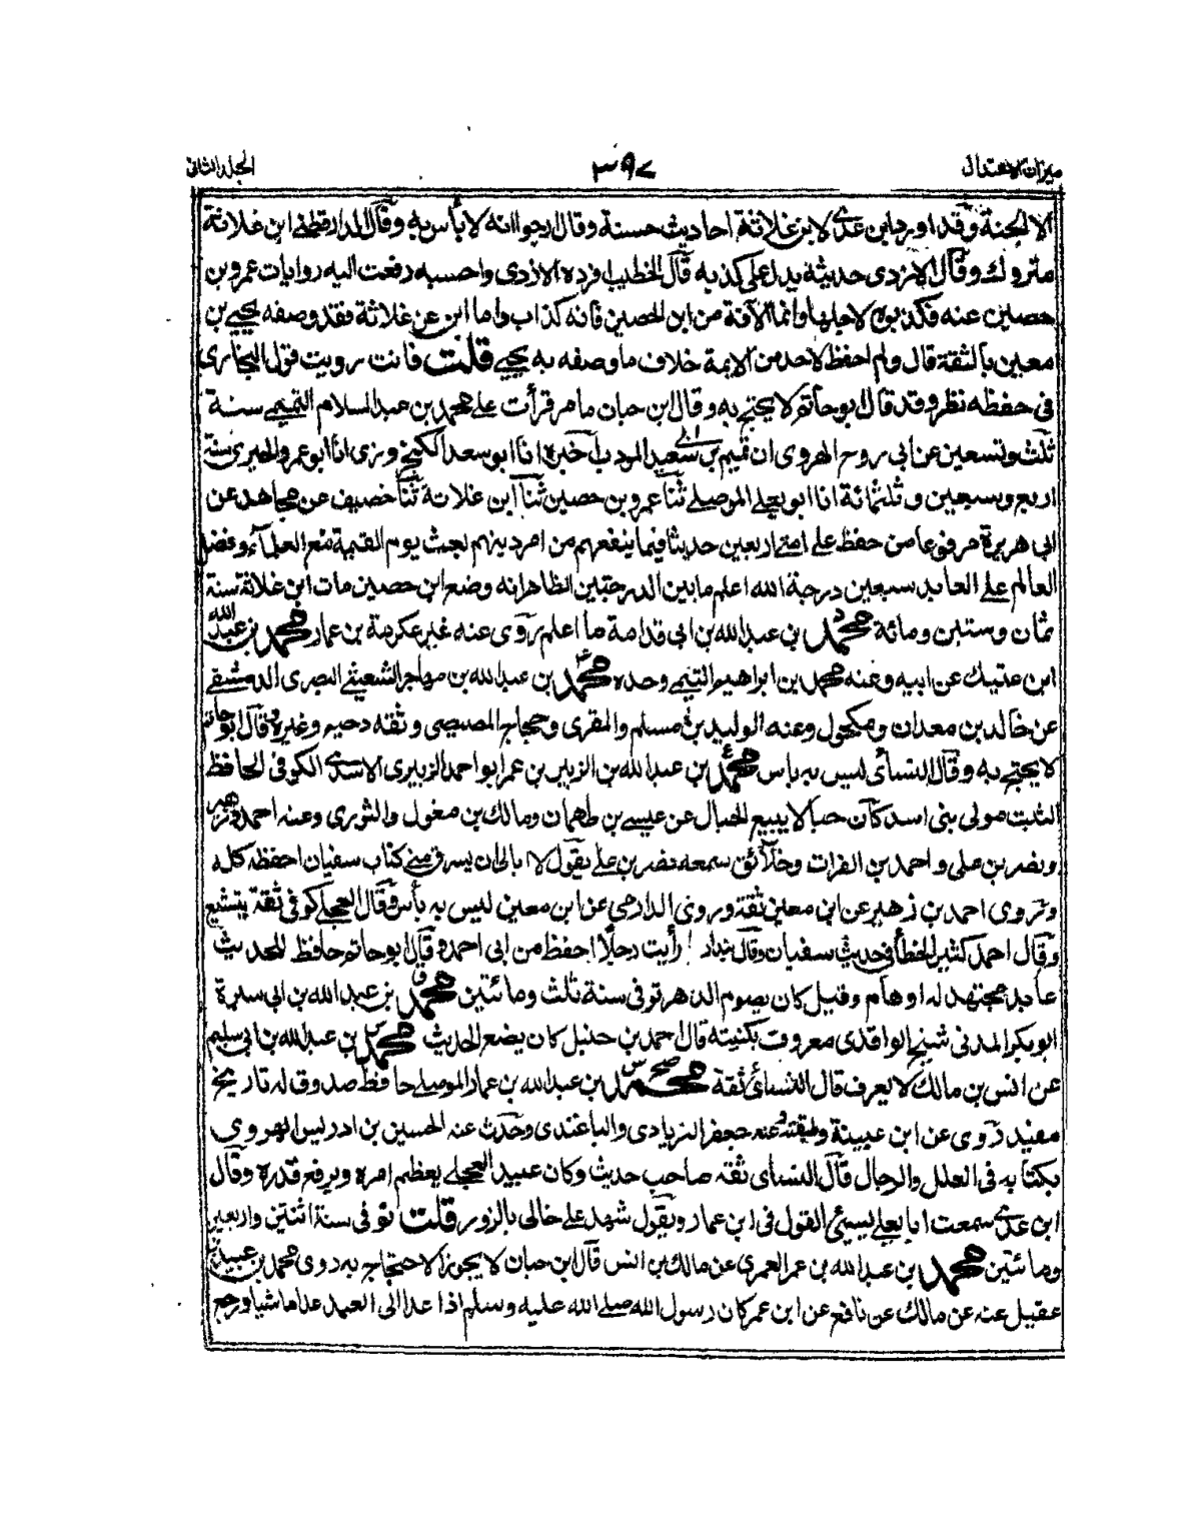 ميزان الاعتدال ٣٩٧ الجلد الثاني
الا الجنة وقد اورد ابن عدي لابن علاثة احاديث حسنة وقال ارجو انه لا بأس به وقال الدارقطني ابن علاثة
متروك وقال الازدي حديثه يدل على كذبه قال الخطيب افرده الازدي واحسبه دفعت اليه روايات عمرو بن
حصين عنه فكذبوه لاجلها وانما الآفة من ابن الحصين فانه كذاب واما ابن علاثة فقد وصفه يحيى بن
معين بالثقة قال ولم احفظ لاحد من الايمة خلاف ما وصفه به يحيى قلت فانت رويت قول البخاري
في حفظه نظر وقد قال ابو حاتم لا يحتج به وقال ابن حبان مامر قرأت على محمد بن عبد السلام التميمي سنة
ثلث وتسعين عن ابي روح الهروي ان تميم بن ابي سعيد المودب اخبره انا ابو سعد الكنجروزي انا ابو عمرو الحيري سنة
اربع وسبعين وثلثمائة انا ابو يعلى الموصلي ثنا عمرو بن حصين ثنا ابن علاثة ثنا خصيف عن مجاهد عن
ابي هريرة مرفوعا من حفظ على امتي اربعين حديثا فيما ينفعهم من امر دينهم بعث يوم القيمة مع العلماء وفضل
العالم على العابد سبعين درجة الله اعلم ما بين الدرجتين الظاهر انه وضع ابن حصين مات ابن علاثة سنة
ثمان وستين ومائة محمد بن عبد الله بن ابي قدامة ما اعلم روى عنه غير عكرمة بن عمار محمد بن عبد الله
ابن عتيك عن ابيه وعنه محمد بن ابراهيم التيمي وحده محمد بن عبد الله بن مهاجر الشعيثي النصري الدمشقي
عن خالد بن معدان ومكحول وعنه الوليد بن مسلم والمقري وحجاج المصيصي وثقه دحيم وغيره وقال ابو حاتم
لا يحتج به وقال النسائي ليس به باس محمد بن عبد الله بن الزبير بن عمر ابو احمد الزبيري الاسدي الكوفي الحافظ
الثبت مولى بني اسد كان حبالا يبيع الحبال عن عيسى بن طهمان ومالك بن مغول والثوري وعنه احمد
ونصر بن علي واحمد بن الفرات وخلائق سمعه نصر بن علي يقول لا ابالي ان يسرق مني كتاب سفيان احفظه كله
وروى احمد بن زهير عن ابن معين ثقة وروى الدارمي عن ابن معين ليس به بأس وقال العجلي كوفي ثقة يتشيع
وقال احمد كثير الخطأ في حديث سفيان وقال بندار ما رأيت رجلا احفظ من ابي احمد وقال ابو حاتم حافظ للحديث
عابد مجتهد له اوهام وقيل كان يصوم الدهر توفى سنة ثلث ومائتين محمد بن عبد الله بن ابي سبرة
ابو بكر المدني شيخ الواقدي معروف بكنيته قال احمد بن حنبل كان يضع الحديث محمد بن عبد الله بن ابي سليم
عن انس بن مالك لا يعرف قال النسائي ثقة محمد بن عبد الله بن عمار الموصلي حافظ صدوق له تاريخ
مفيد روى عن ابن عيينة وطبقته وعنه جعفر الفريابي والباغندي وحدث عنه الحسين بن ادريس الهروي
بكتابه في العلل والرجال قال النسائي ثقة صاحب حديث وكان عبيد العجلي يعظم امره ويرفع قدره وقال
ابن عدي سمعت ابا يعلى يسيئ القول في ابن عمار ويقول شهد على خالي بالزور قلت توفى سنة اثنتين واربعين
ومائتين محمد بن عبد الله بن عمر العمري عن مالك بن انس قال ابن حبان لا يجوز الاحتجاج به روى محمد بن عبيد بن
عقيل عنه عن مالك عن نافع عن ابن عمر كان رسول الله صلى الله عليه وسلم اذا غدا الى العيد غدا ماشيا ورجع